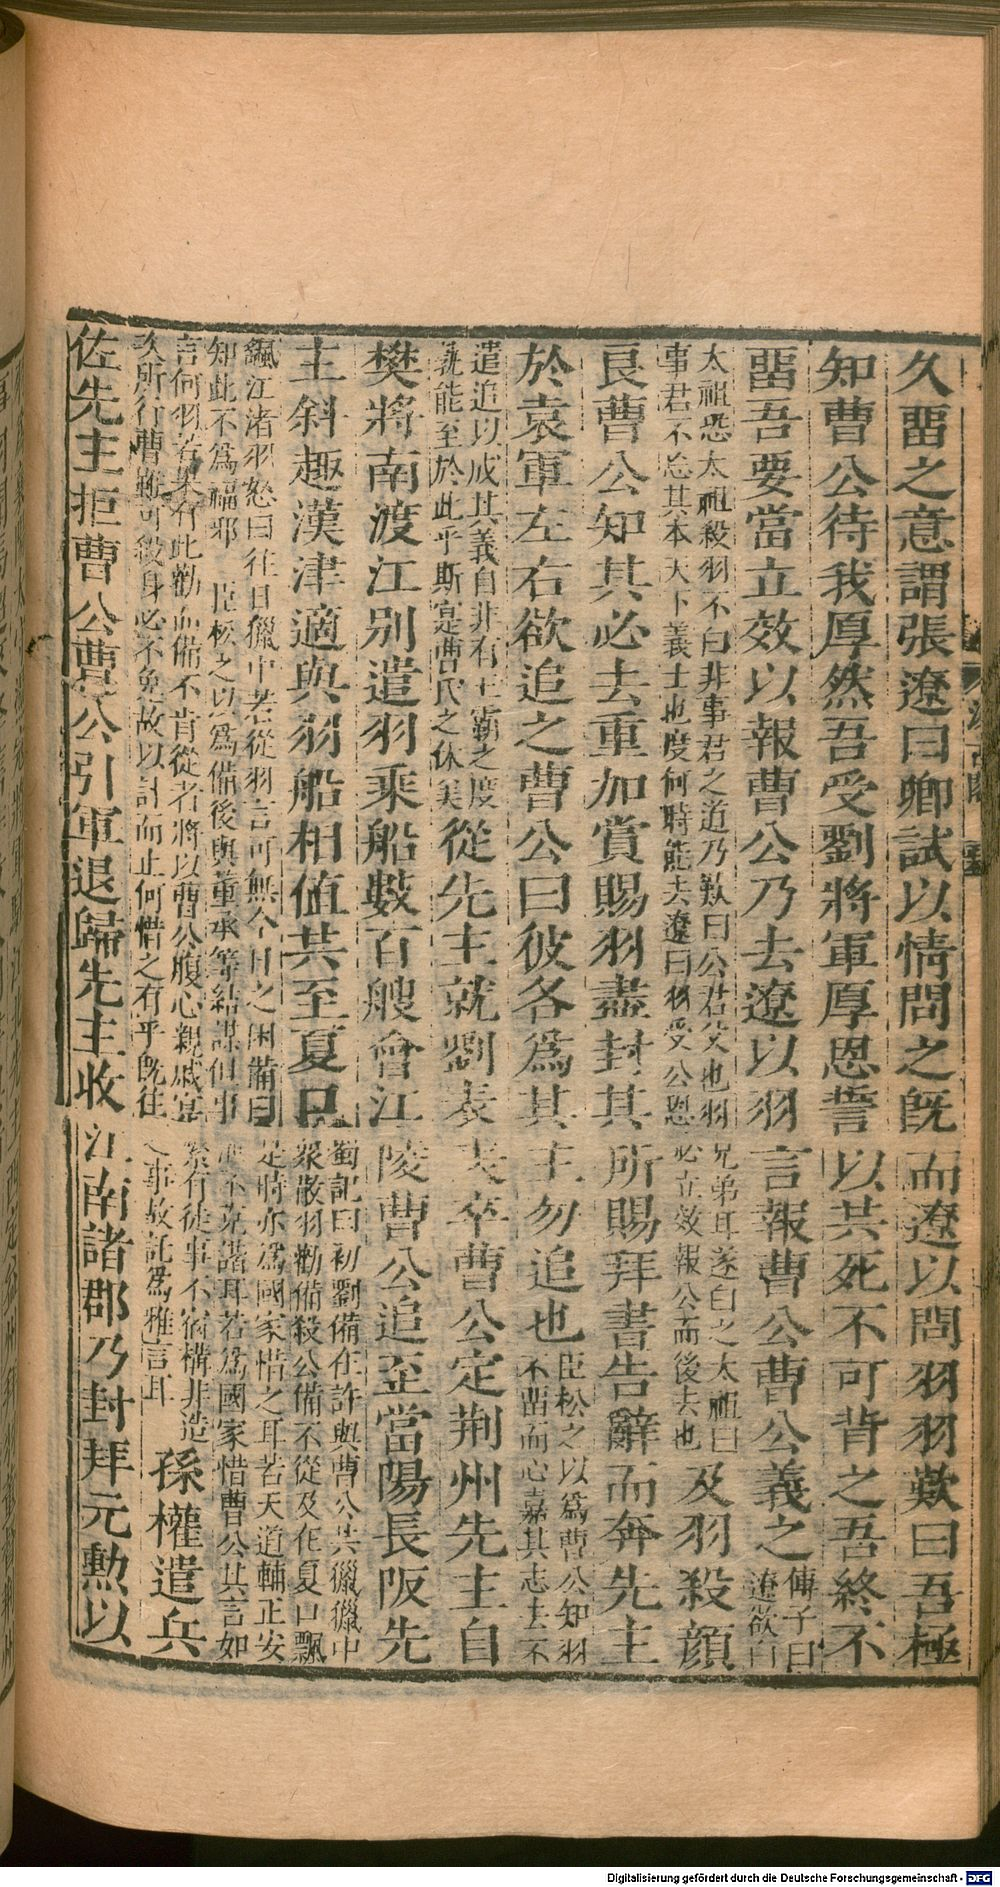 久畱之意謂張遼曰卿試以情問之旣而遼以問羽羽歎曰吾極
知曹公待我厚然吾受劉將軍厚恩誓以共死不可背之吾終不
畱吾要當立效以報曹公乃去遼以羽言報曹公曹公義之
傅子曰
遼欲白
太祖恐太祖殺羽不白非事君之道乃歎曰公君父也羽兄弟耳遂白之太祖曰
事君不忘其本天下義士也度何時能去遼曰羽受公恩必立效報公而後去也
及羽殺顔
良曹公知其必去重加賞賜羽盡封其所賜拜書告辭而奔先主
於袁軍左右欲追之曹公曰彼各爲其主勿追也
臣松之以爲曹公知羽
不畱而心嘉其志去不
遣追以成其義自非有王霸之度
孰能至於此乎斯寔曹氏之休美
從先主就劉表表卒曹公定荆州先主自
樊將南渡江别遣羽乘船數百艘會江陵曹公追至當陽長阪先
主斜趣漢津適與羽船相值共至夏口
蜀記曰初劉備在許與曹公共獵獵中
衆散羽勸備殺公備不從及在夏口飄
飖江渚羽怒曰往日獵中若從羽言可無今日之困備曰是時亦爲國家惜之耳若天道輔正安
知此不爲福邪 臣松之以爲備後與董承等結謀但事泄不克諧耳若爲國家惜曹公其言如
言何羽若果有此勸而備不肯從者將以曹公腹心親戚寔繁有徒事不宿構非造
次所行曹雖可殺身必不免故以計而止何惜之有乎旣往之事故託爲雅言耳
孫權遣兵
佐先主拒曹公曹公引軍退歸先主收江南諸郡乃封拜元勳以
Digitalisierung gefördert durch die Deutsche Forschungsgemeinschaft - DFG